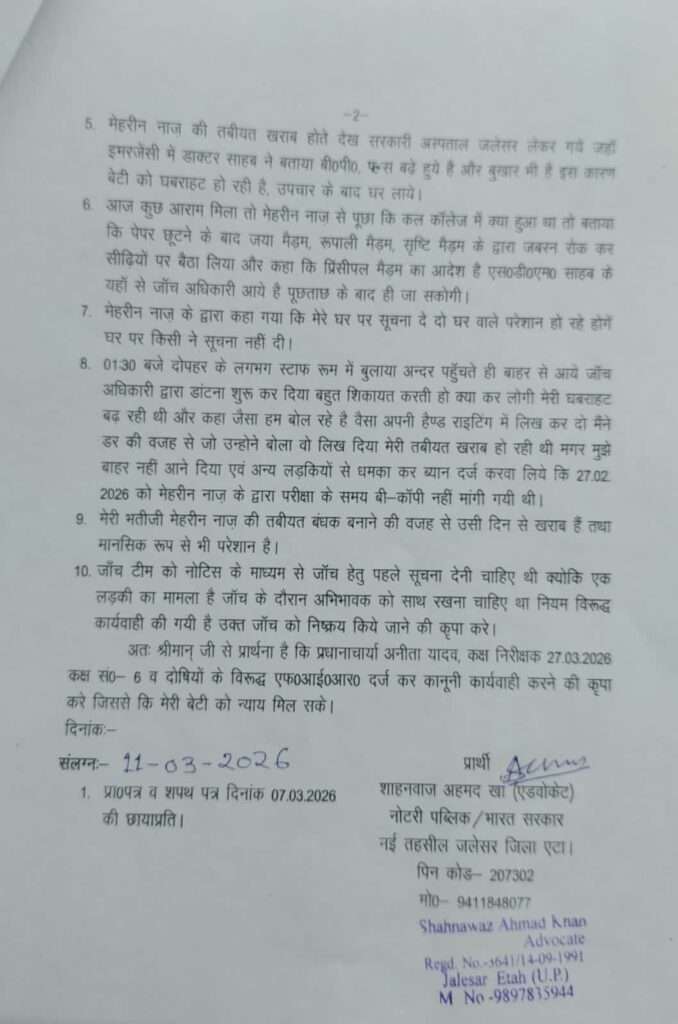 -2-
5. मेहरीन नाज़ की तबीयत खराब होते देख सरकारी अस्पताल जलेसर लेकर गये जहाँ
इमरजेसी में डाक्टर साहब ने बताया बी0पी0, पल्स बढ़े हुये है और बुखार भी है इस कारण
बेटी को घबराहट हो रही है, उपचार के बाद घर लाये।
6. आज कुछ आराम मिला तो मेहरीन नाज़ से पूछा कि कल कॉलेज में क्या हुआ था तो बताया
कि पेपर छूटने के बाद जया मैड़म, रूपाली मैड़म, सृष्टि मैड़म के द्वारा जबरन रोक कर
सीढ़ियों पर बैठा लिया और कहा कि प्रिंसीपल मैड़म का आदेश है एस0डी0एम0 साहब के
यहाँ से जॉच अधिकारी आये है पूछताछ के बाद ही जा सकोगी।
7. मेहरीन नाज़ के द्वारा कहा गया कि मेरे घर पर सूचना दे दो घर वाले परेशान हो रहे होगें
घर पर किसी ने सूचना नहीं दी।
8. 01:30 बजे दोपहर के लगभग स्टाफ रूम में बुलाया अन्दर पहुँचते ही बाहर से आये जॉच
अधिकारी द्वारा डांटना शुरू कर दिया बहुत शिकायत करती हो क्या कर लोगी मेरी घबराहट
बढ़ रही थी और कहा जैसा हम बोल रहे है वैसा अपनी हैण्ड राइटिंग में लिख कर दो मैंने
डर की वजह से जो उन्होने बोला वो लिख दिया मेरी तबीयत खराब हो रही थी मगर मुझे
बाहर नहीं आने दिया एवं अन्य लड़कियों से धमका कर ब्यान दर्ज करवा लिये कि 27.02.
2026 को मेहरीन नाज़ के द्वारा परीक्षा के समय बी-कॉपी नहीं मांगी गयी थी।
9. मेरी भतीजी मेहरीन नाज़ की तबीयत बंधक बनाने की वजह से उसी दिन से खराब हैं तथा
मानसिक रूप से भी परेशान है।
10. जाँच टीम को नोटिस के माध्यम से जॉच हेतु पहले सूचना देनी चाहिए थी क्योकि एक
लड़की का मामला है जॉच के दौरान अभिभावक को साथ रखना चाहिए था नियम विरूद्ध
कार्यवाही की गयी है उक्त जॉच को निष्क्रय किये जाने की कृपा करे।
अतः श्रीमान् जी से प्रार्थना है कि प्रधानाचार्या अनीता यादव, कक्ष निरीक्षक 27.03.2026
कक्ष सं0- 6 व दोषियों के विरूद्ध एफ0आई0आर0 दर्ज कर कानूनी कार्यवाही करने की कृपा
करे जिससे कि मेरी बेटी को न्याय मिल सके।
दिनांकः-
संलग्नः- 11-03-2026
1. प्रा0पत्र व शपथ पत्र दिनांक 07.03.2026
की छायाप्रति।
प्रार्थी
शाहनवाज अहमद खां (एडवोकेट)
नोटरी पब्लिक/भारत सरकार
नई तहसील जलेसर जिला एटा।
पिन कोड- 207302
मो0- 9411848077
Shahnawaz Ahmad Khan
Advocate
Regd. No.-3641/14-09-1991
Jalesar Etah (U.P.)
M No -9897835944